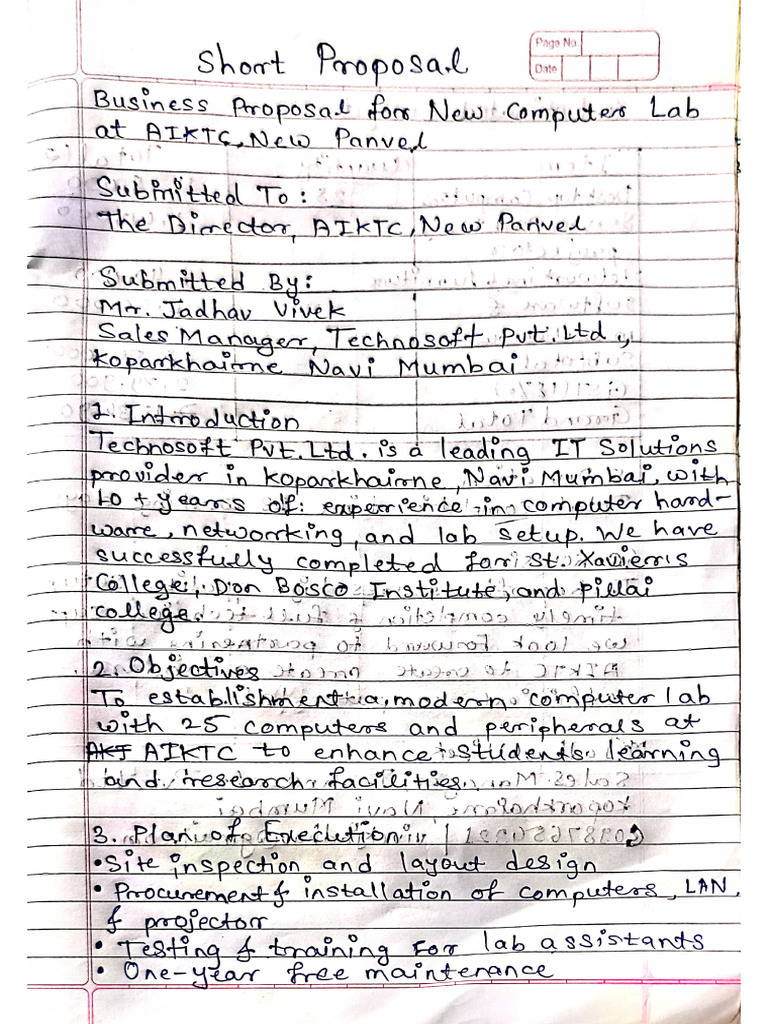 Short Proposal
Page No
Date
Business Proposal for New Computer Lab
at AIKTC, New Panvel
Submitted To:
The Director, AIKTC, New Panvel
Submitted By:
Mr. Jadhav Vivek
Sales Manager, Technosoft Pvt. Ltd.,
Koparkhairne Navi Mumbai
1. Introduction
Technosoft Pvt. Ltd. is a leading IT Solutions
provider in Koparkhairne, Navi Mumbai, with
10 + years of experience in computer hard-
ware, networking, and lab setup. We have
successfully completed for St. Xavierris
College, Don Bosco Institute, and Pillai
college.
2. Objectives
To establishment a modern computer lab
with 25 computers and peripherals at
AIKTC to enhance students learning
and research facilities.
3. Plan of Execution
• Site inspection and layout design
• Procurement & installation of computers, LAN,
& projector
• Testing & training for lab assistants
• One-year free maintenance